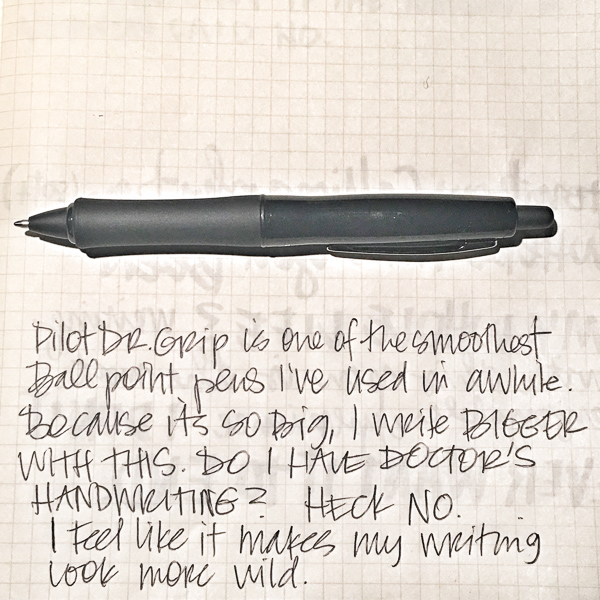 Pilot DR. GRIP is one of the smoothest
Ball point pens I've used in awhile.
Because it's so big, I write BIGGER
WITH THIS. DO I HAVE DOCTOR'S
HANDWRITING? HECK NO.
I feel like it makes my writing
look more wild.